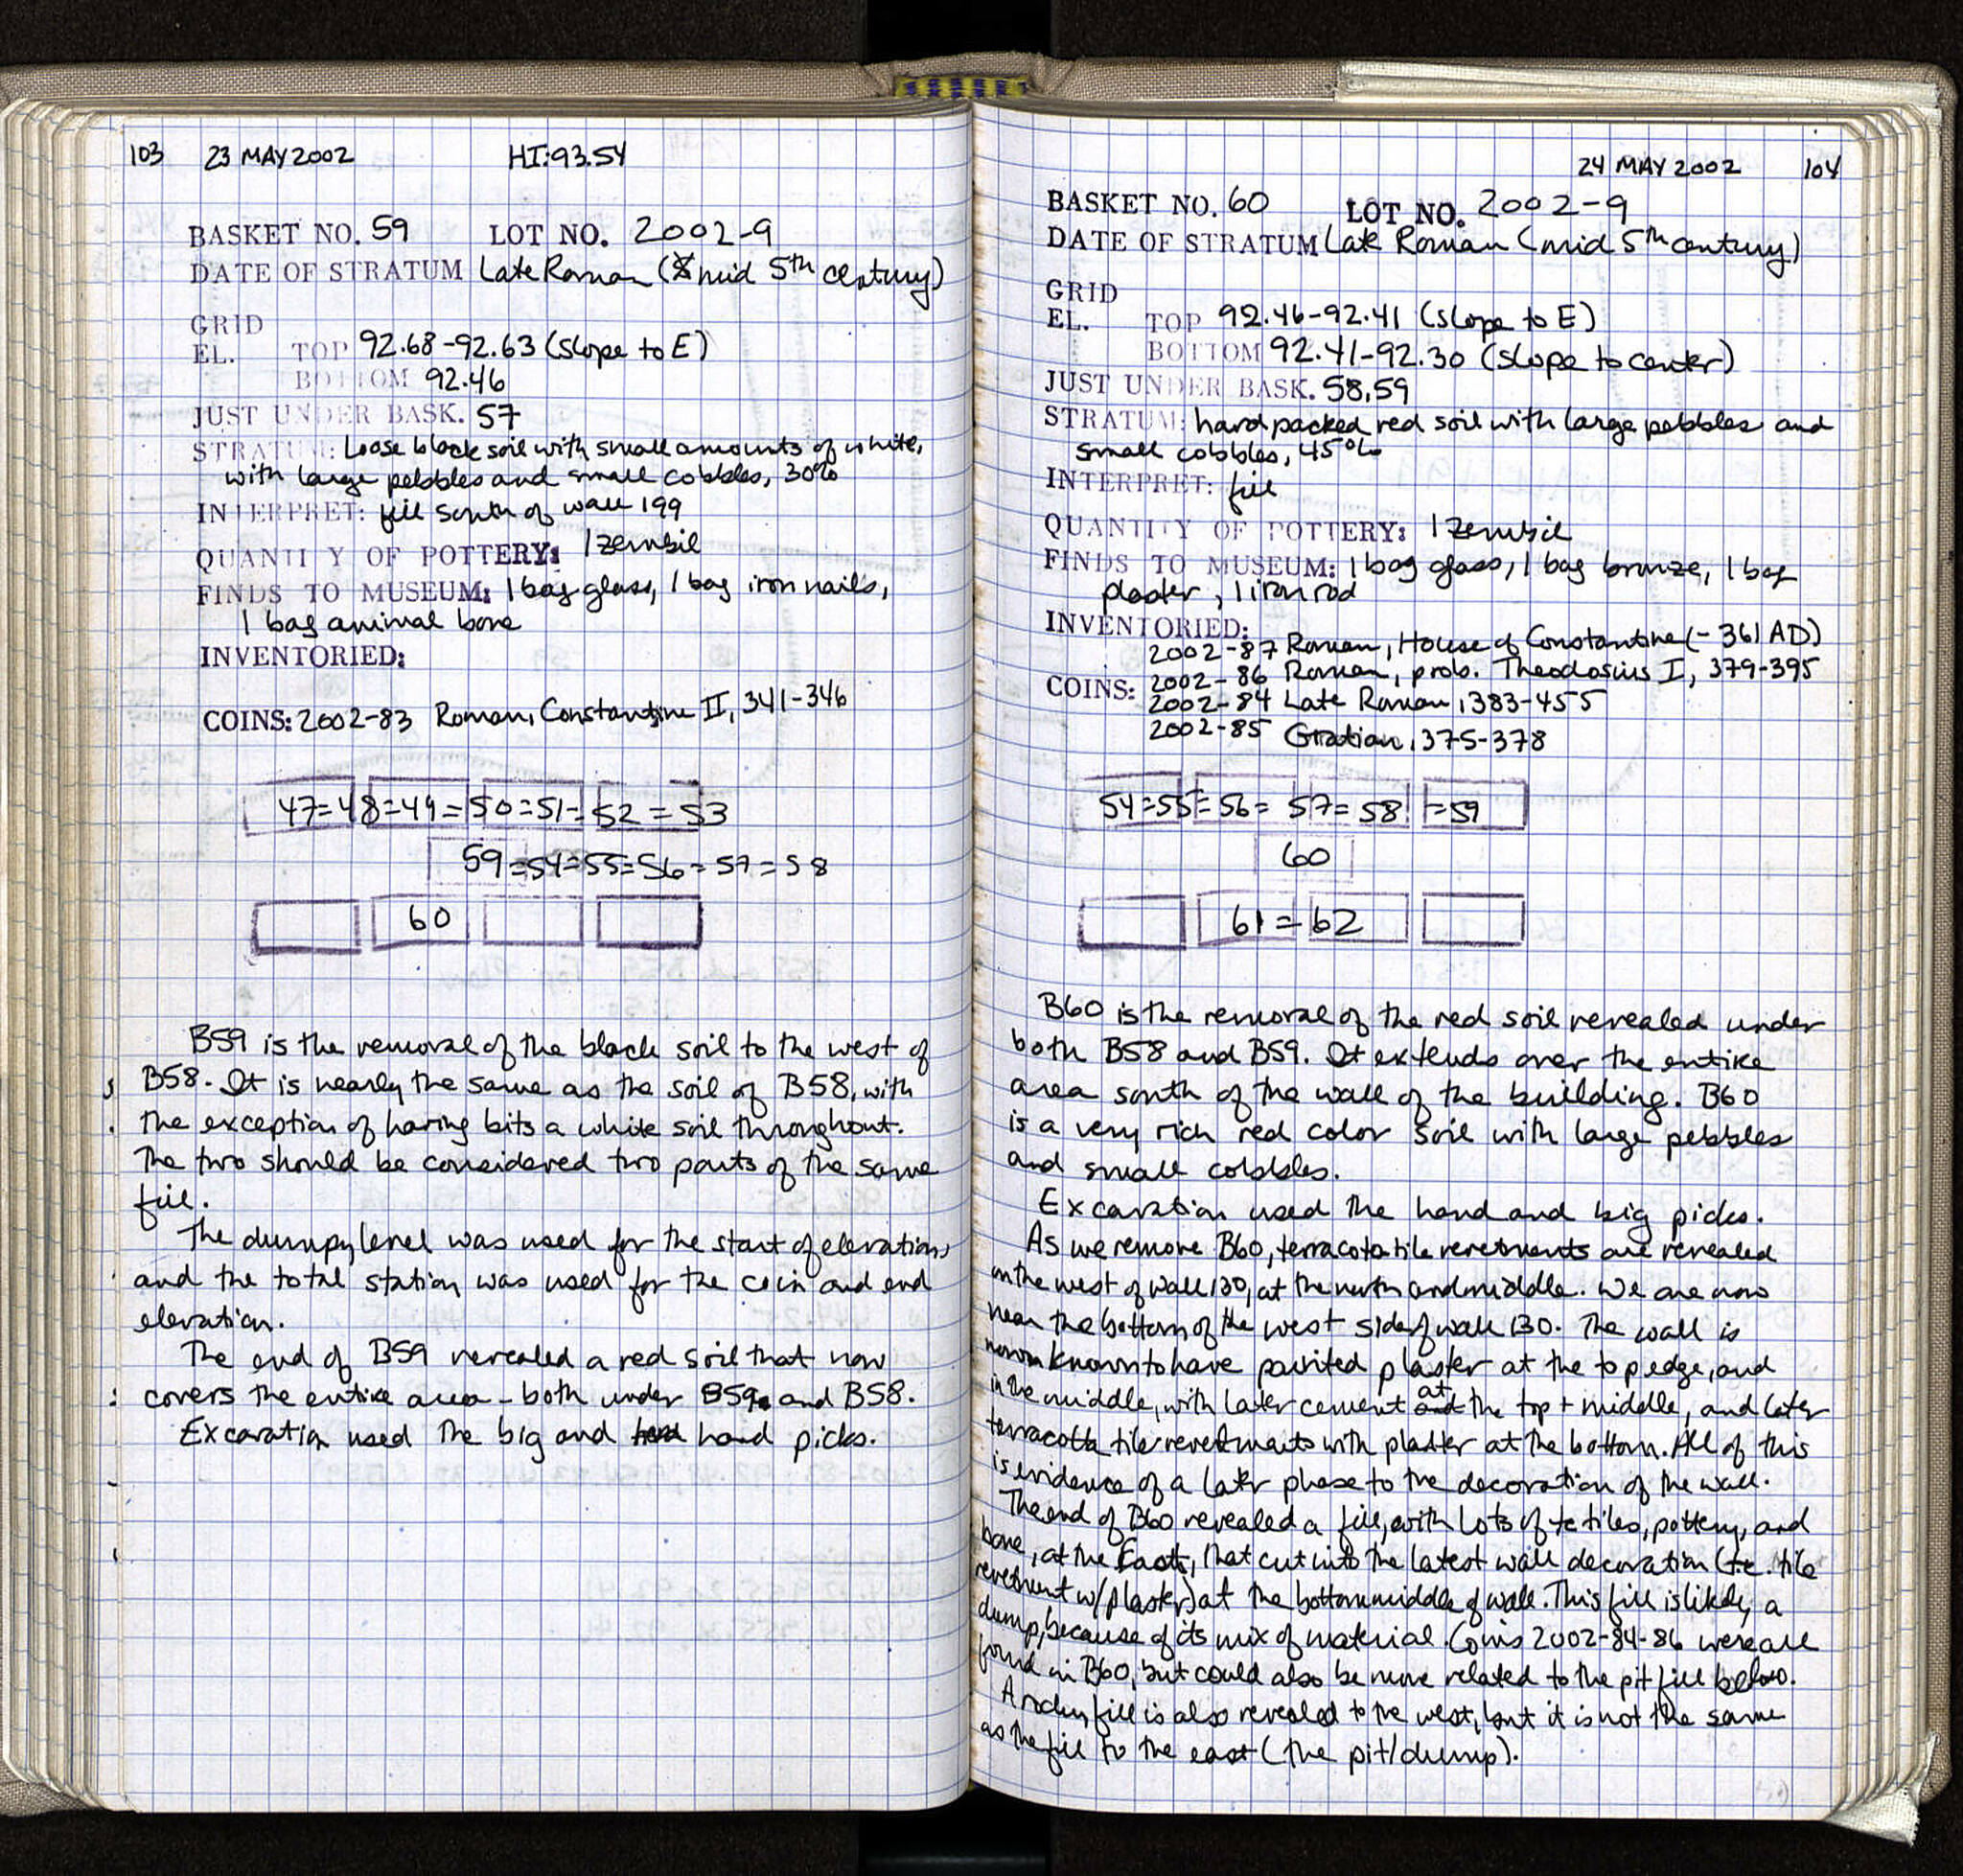 103 23 MAY 2002 HI:93.54
BASKET NO. 59 LOT NO. 2002-9
DATE OF STRATUM Late Roman (mid 5th century)
GRID
EL. TOP 92.68-92.63 (slope to E)
BOTTOM 92.46
JUST UNDER BASK. 57
STRATUM: Loose black soil with small amounts of white,
with large pebbles and small cobbles, 30%
INTERPRET: fill south of wall 199
QUANTITY OF POTTERY: 1 zembil
FINDS TO MUSEUM: 1 bag glass, 1 bag iron nails,
1 bag animal bone
INVENTORIED:
COINS: 2002-83 Roman, Constantine II, 341-346
47=48=49=50=51=52=53
59=54=55=56=57=58
60
B59 is the removal of the black soil to the west of
B58. It is nearly the same as the soil of B58, with
the exception of having bits a white soil throughout.
The two should be considered two parts of the same
fill.
The dumpy level was used for the start of elevations
and the total station was used for the coin and end
elevation.
The end of B59 revealed a red soil that now
covers the entire area - both under B59 and B58.
Excavation used the big and hand picks.
24 MAY 2002 104
BASKET NO. 60 LOT NO. 2002-9
DATE OF STRATUM Late Roman (mid 5th century)
GRID
EL. TOP 92.46-92.41 (slope to E)
BOTTOM 92.41-92.30 (slope to center)
JUST UNDER BASK. 58,59
STRATUM: hard packed red soil with large pebbles and
small cobbles, 45%
INTERPRET: fill
QUANTITY OF POTTERY: 1 zembil
FINDS TO MUSEUM: 1 bag glass, 1 bag bronze, 1 bag
plaster, 1 iron rod
INVENTORIED:
2002-87 Roman, House of Constantine (-361 AD)
2002-86 Roman, prob. Theodosius I, 379-395
COINS: 2002-84 Late Roman, 383-455
2002-85 Gratian, 375-378
54=55=56=57=58=59
60
61=62
B60 is the removal of the red soil revealed under
both B58 and B59. It extends over the entire
area south of the wall of the building. B60
is a very rich red color soil with large pebbles
and small cobbles.
Excavation used the hand and big picks.
As we remove B60, terracota tile revetments are revealed
on the west of wall 130, at the north and middle. We are now
near the bottom of the west side of wall 130. The wall is
known to have painted plaster at the top edge, and
in the middle, with later cement at the top + middle, and later
terracotta tile revetments with plaster at the bottom. All of this
is evidence of a later phase to the decoration of the wall.
The end of B60 revealed a fill, with lots of tc tiles, pottery, and
bone, at the East, that cut into the latest wall decoration (t.c. tile
revetment w/plaster) at the bottom middle of wall. This fill is likely a
dump, because of its mix of material. Coins 2002-84-86 were all
found in B60, but could also be more related to the pit fill below.
Another fill is also revealed to the west, but it is not the same
as the fill to the east (the pit/dump).